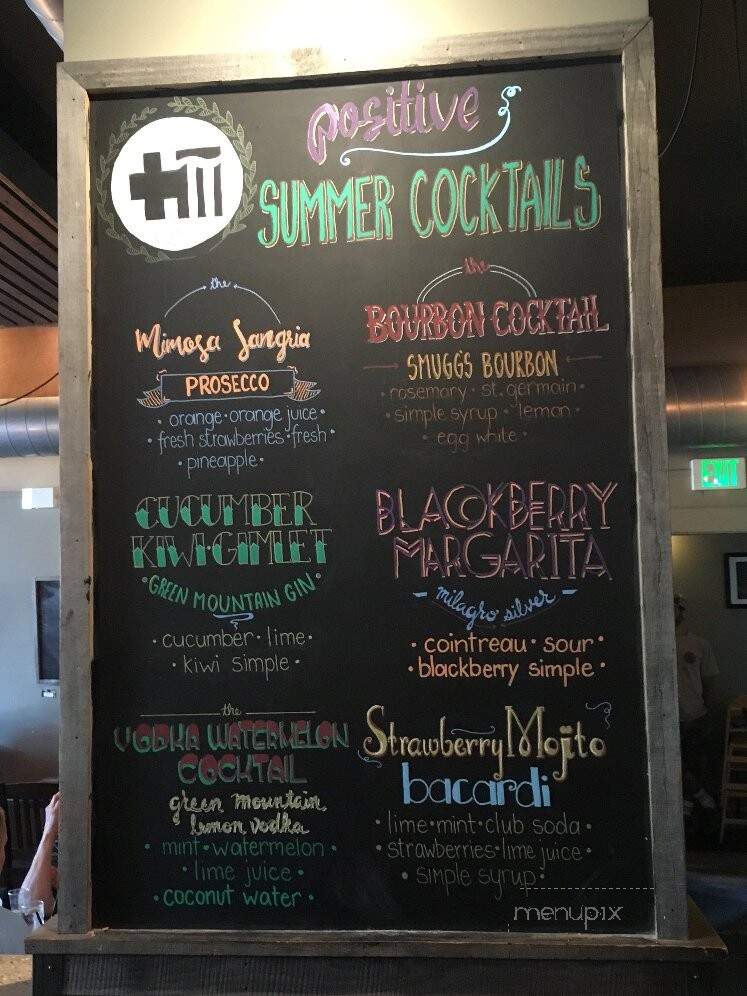 positive
SUMMER COCKTAILS
the
Mimosa Sangria
PROSECCO
• orange • orange juice •
• fresh strawberries • fresh
• pineapple •
the
BOURBON COCKTAIL
SMUGGS BOURBON
• rosemary • st. germain •
• simple syrup • lemon •
• egg white •
CUCUMBER
KIWI • GIMLET
• GREEN MOUNTAIN GIN •
• cucumber • lime •
• kiwi simple •
BLACKBERRY
MARGARITA
- milagro silver -
• cointreau • sour •
• blackberry simple •
the
VODKA WATERMELON
COCKTAIL
green mountain
lemon vodka
• mint • watermelon •
• lime juice •
• coconut water •
Strawberry Mojito
bacardi
• lime • mint • club soda •
• strawberries • lime juice •
• simple syrup •
menupix
EXIT